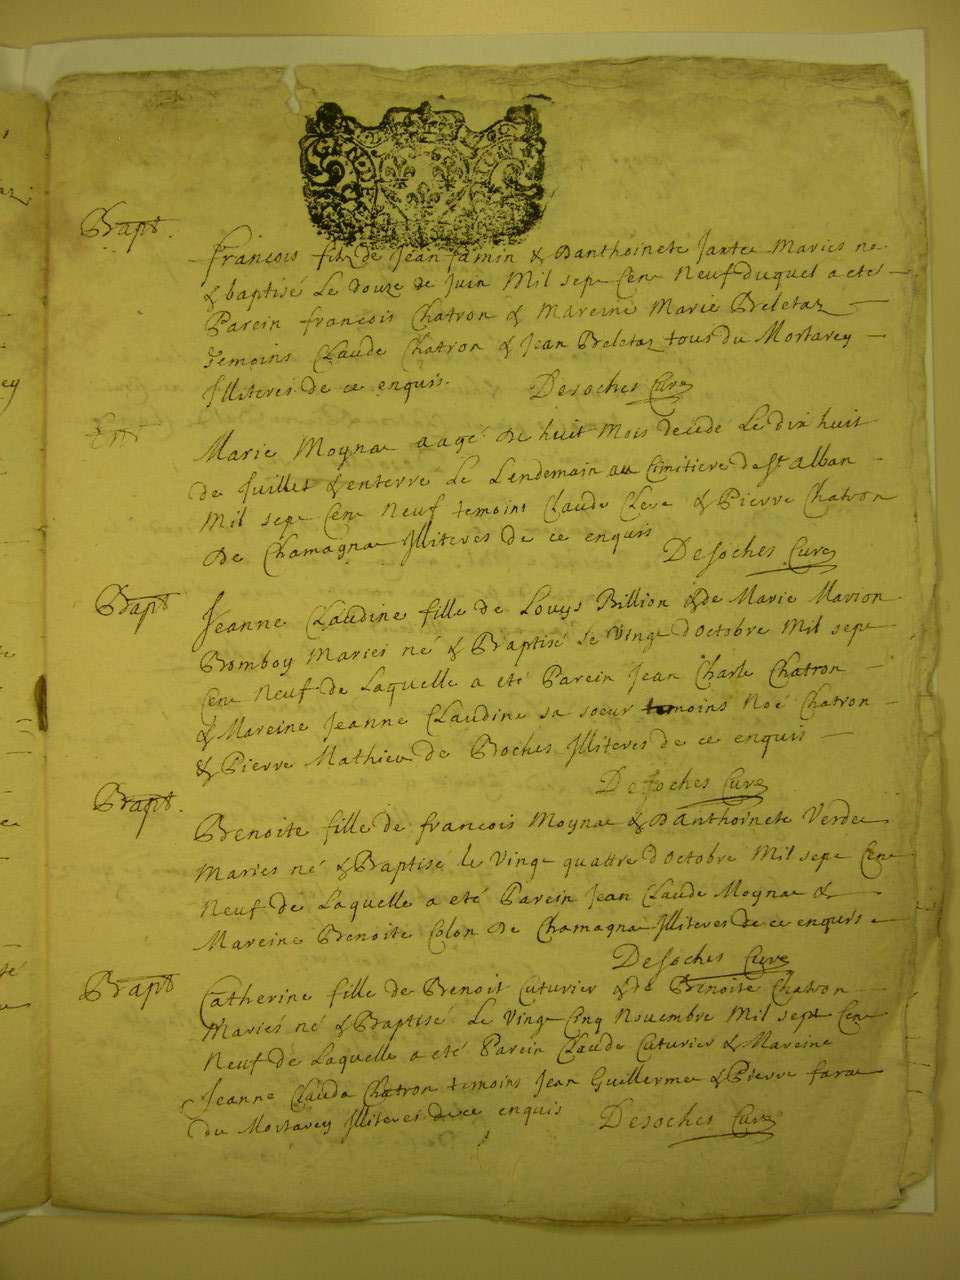 Bapt.
François filz de Jean Jamin & Danthoinete Jantet Maries ne
& baptisé Le douze de Juin Mil sept Cent Neuf duquel a etes
Parein françois Chatron & Mareine Marie Beletaz
Temoins Claude Chatron & Jean Beletaz tous du Mortarey
Illiteres de ce enquis. Desoches Curé
Ent
Marie Moynat aagé de huit mois decedé Le dix huit
de Juillet & enterré Le Lendemain au Cimitiere de St alban
Mil sept Cent Neuf temoins Claude Clere & Pierre Chatron
De Chamagnat Illiteres de ce enquis
Desoches Curé
Bapt
Jeanne Claudine fille de Louys Billion & de Marie Marion
Bomboy Maries né & Baptisé Le Vingt d'Octobre Mil sept
Cent Neuf de Laquelle a eté Parein Jean Charle Chatron
& Mareine Jeanne Claudine sa soeur temoins Noé Chatron
& Pierre Mathieu de Boches Illiteres de ce enquis
Desoches Curé
Bapt.
Benoite fille de françois Moynat & Danthoinete Verdet
Maries né & Baptisé le Vingt quattre d'Octobre Mil sept Cent
Neuf de Laquelle a eté Parein Jean Claude Moynat &
Mareine Benoite Colon de Chamagnat Illiteres de ce enquis
Desoches Curé
Bapt
Catherine fille de Benoit Cuturier & de Benoite Chatron
Mariés né & Baptisé Le Vingt Cinq Novembre Mil sept Cent
Neuf de Laquelle a eté Parein Claude Cuturier & Mareine
Jeanne Clauda Chatron temoins Jean Guillermet & Pierre farat
du Mortarey Illiteres de ce enquis Desoches Curé